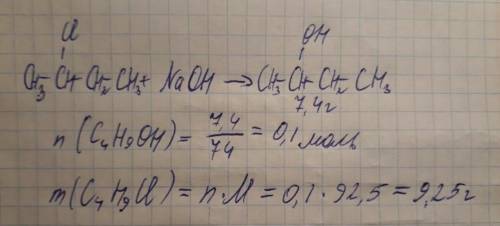 Cl OH
CH₃ CH CH₂ CH₃ + NaOH → CH₃ CH CH₂ CH₃
7,4г
n (C₄H₉OH) = 7,4/74 = 0,1 моль
m(C₄H₉Cl) = n·M = 0,1 · 92,5 = 9,25г